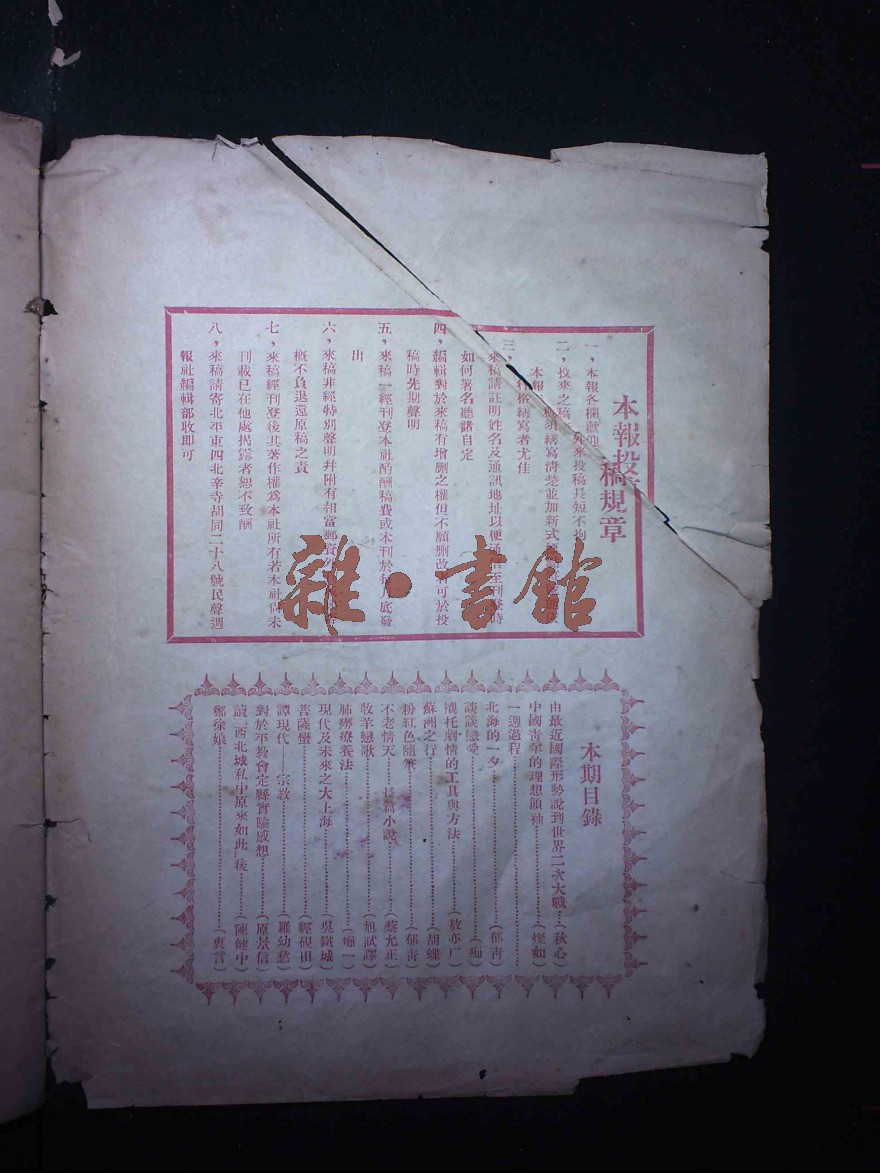 本報投稿規章
一，本報各欄歡迎外來投稿長短不拘
二，投來之稿須繕寫清楚並加新式
本報行格繕寫者尤佳
三，來稿請註明姓名及通訊地址以便通信至刊登時
如何署名聽諸自定
四，編輯對於來稿有增删之權但不願删改者可於投
稿時先期聲明
五，來稿一經刊登本社酌酬稿費或本刊於每月底發
出
六，來稿非經特別聲明幷附有相當郵資
概不負退還原稿之責
七，來稿經刊登後其著作權爲本社所有若本社尙未
刊載已在他處揭露者恕不致酬
八，來稿請寄北平東四北辛寺胡同二十八號民聲週
報社編輯部收即可
雜·書館
本期目錄
由最近國際形勢說到世界二次大戰……（秋心）
中國靑年的理想領袖……（燦如）
一週過程……
北海的一夕……（郁靑）
談談戀愛……（痴）
襯托劇情的工具與方法……（敖亦厂）
蘇洲之行……（胡蝶）
粉紅色隨筆……（郁靑）
不老情天……長篇小說……（蔡允正）
牧羊戀歌……（旭試譯）
肺癆療養法……（痴一）
現代及未來之大上海……（吳鐵城）
菩薩蠻……（經硯田）
譚現代——宗教……（羅幼愁）
對於平教會定縣實驗感想……（原景信）
讀「西北城私中原來如此」後……（陳健中）
鄭徐娘……（裏言）